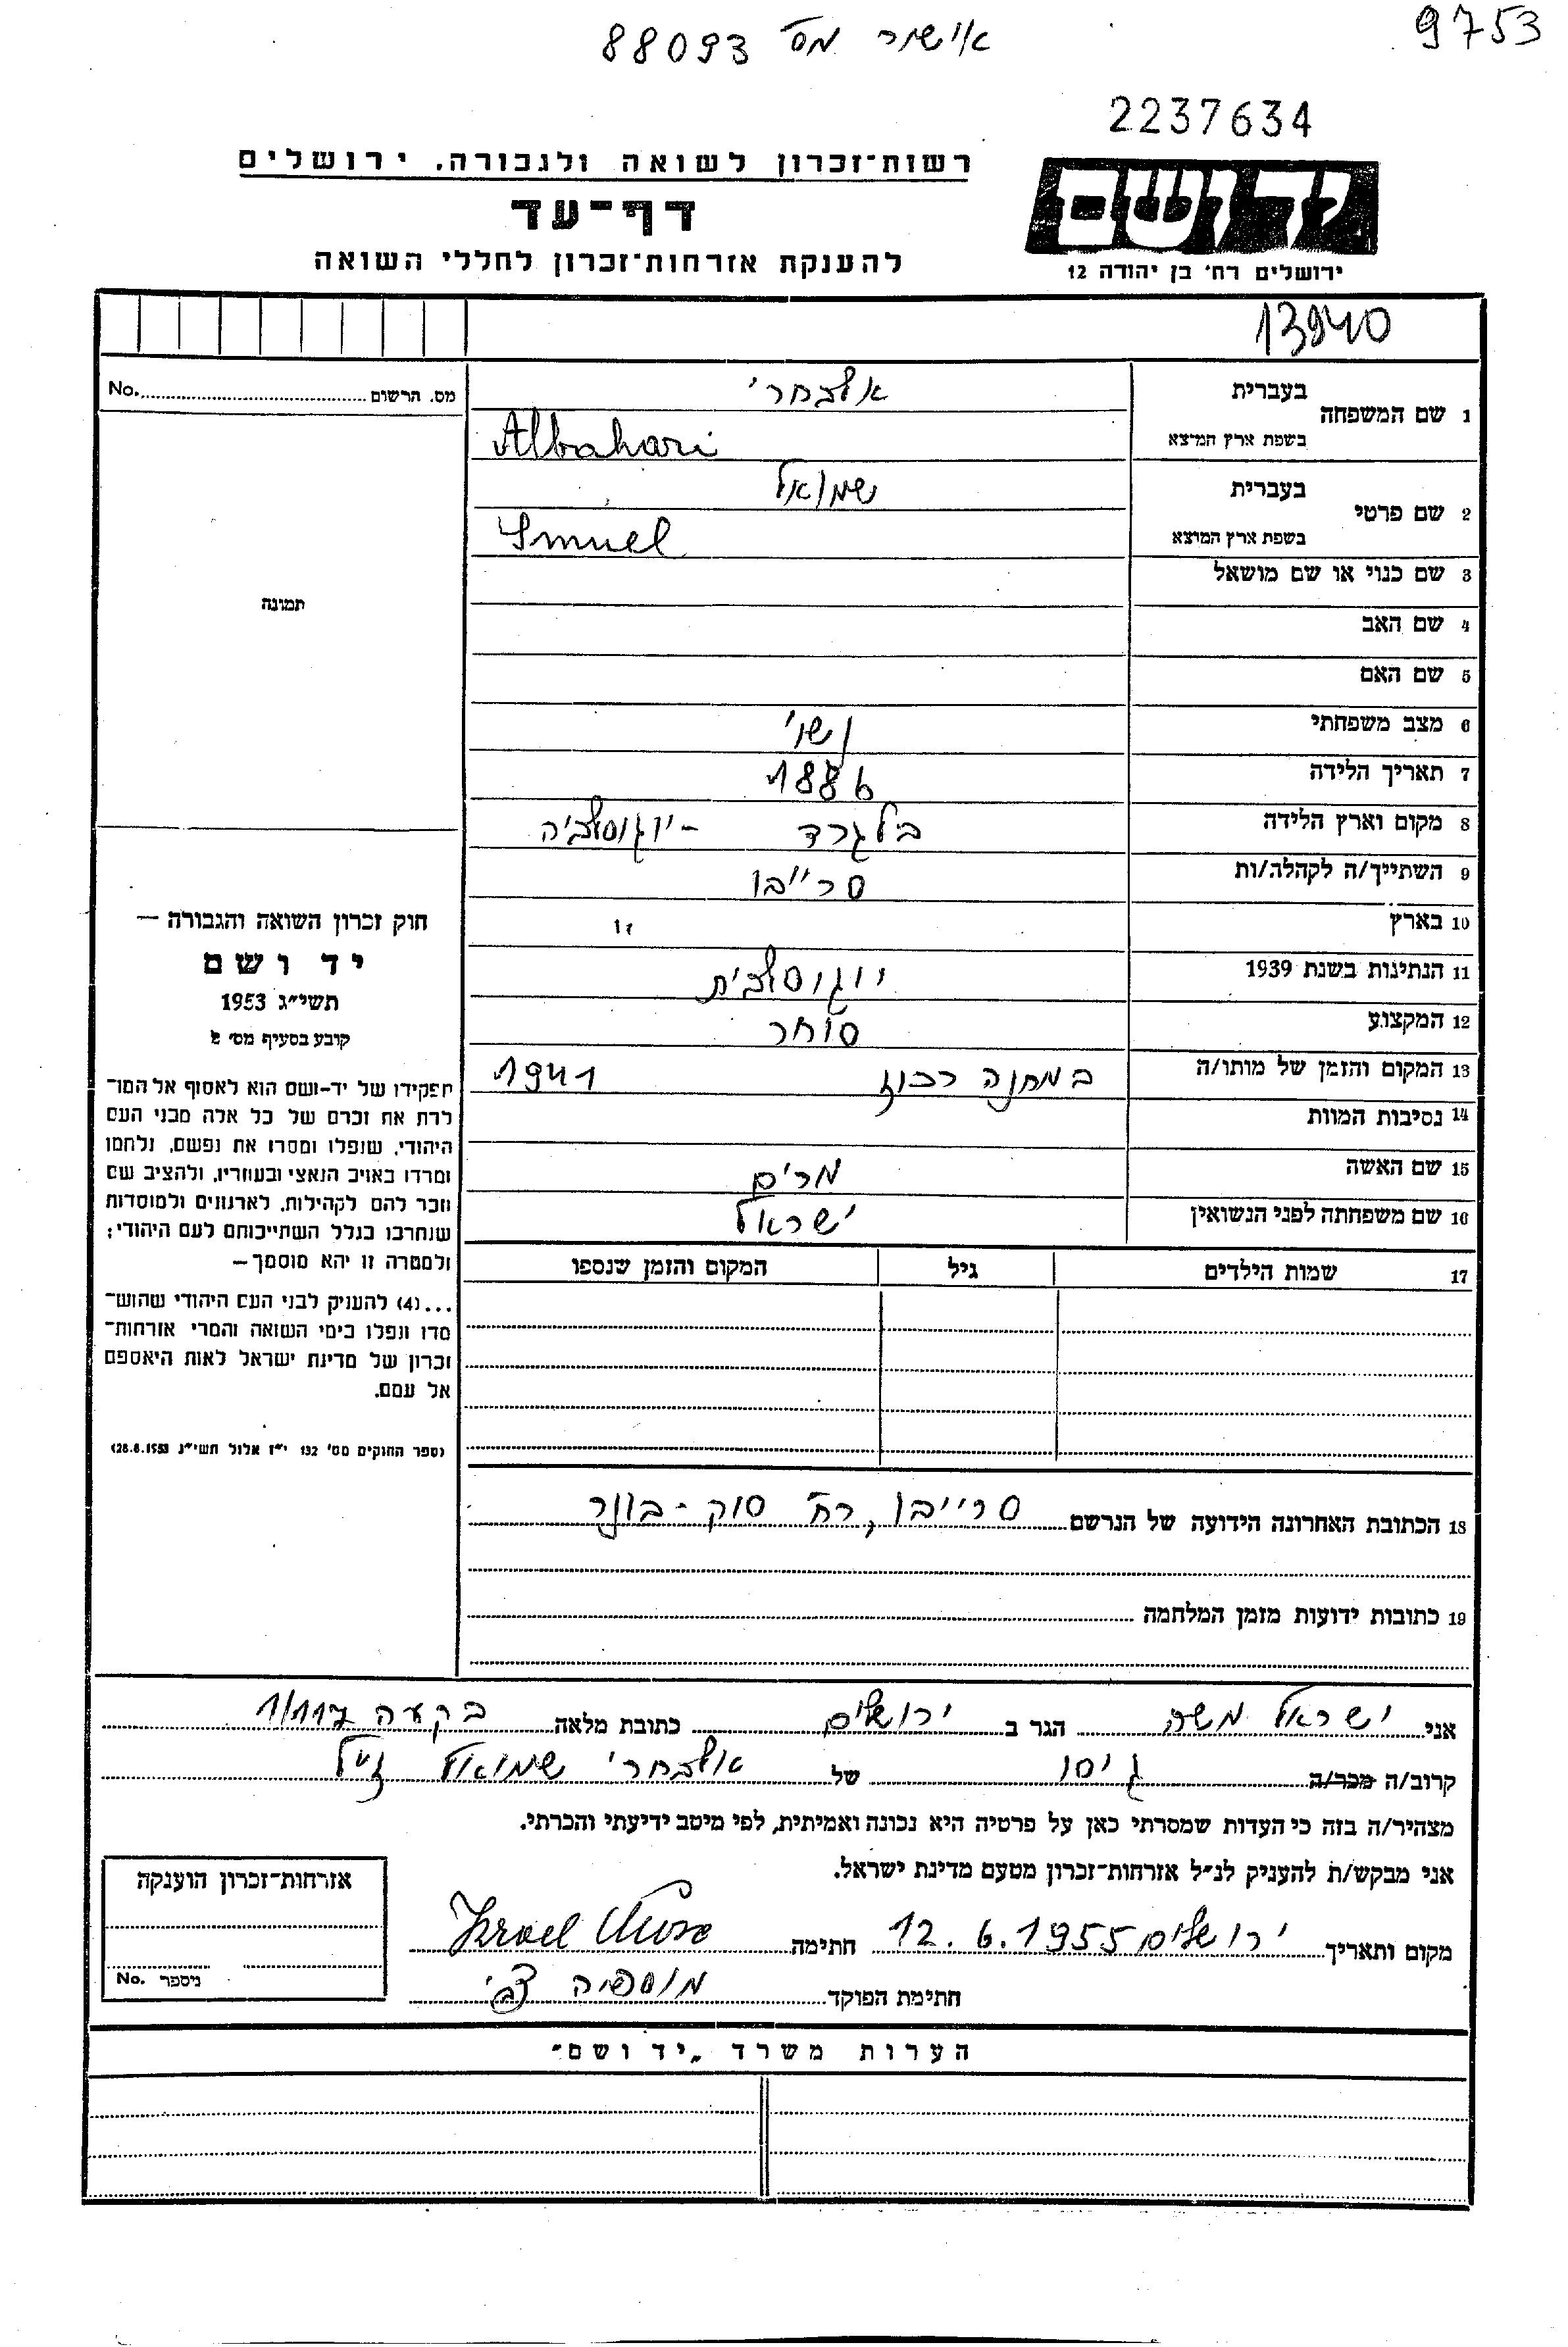 9753
אישור מס' 88093
2237634
רשות־זכרון לשואה ולגבורה, ירושלים
יד ושם
דף־עד
להענקת אזרחות־זכרון לחללי השואה
ירושלים רח' בן יהודה 12
13940
No. מס. הרשום
1 שם המשפחה
בעברית אלבחרי
בשפת ארץ המוצא Albahari
2 שם פרטי
בעברית שמואל
בשפת ארץ המוצא Smuel
3 שם כנוי או שם מושאל
תמונה
4 שם האב
5 שם האם
6 מצב משפחתי נשוי
7 תאריך הלידה 1886
8 מקום וארץ הלידה בילגרד - יוגוסלביה
9 השתייך/ה לקהלה/ות סרייבו
10 בארץ "
11 הנתינות בשנת 1939 יוגוסלבית
12 המקצוע סוחר
13 המקום והזמן של מותו/ה במחנה רכוז 1941
14 נסיבות המוות
15 שם האשה מרים
16 שם משפחתה לפני הנשואין ישראל
17 שמות הילדים גיל המקום והזמן שנספו
חוק זכרון השואה והגבורה —
יד ושם
תשי״ג 1953
קובע בסעיף מס' 2
תפקידו של יד-ושם הוא לאסוף אל המו־
לדת את זכרם של כל אלה מבני העם
היהודי, שנפלו ומסרו את נפשם, נלחמו
ומרדו באויב הנאצי ובעוזריו, ולהציב שם
וזכר להם לקהילות, לארגונים ולמוסדות
שנחרבו בגלל השתייכותם לעם היהודי;
ולמטרה זו יהא מוסמך—
...(4) להעניק לבני העם היהודי שהוש־
מדו ונפלו בימי השואה והמרי אזרחות־
זכרון של מדינת ישראל לאות היאספם
אל עמם.
(ספר החוקים מס' 132 י״ז אלול תשי״ג 28.8.1953)
18 הכתובת האחרונה הידועה של הנרשם סרייבו, רח' סוק-בונר
19 כתובות ידועות מזמן המלחמה
אני ישראל משה הגר ב ירושלים כתובת מלאה בקעה 1/117
קרוב/ה מכר/ה גיסו של אלבחרי שמואל ז״ל
מצהיר/ה בזה כי העדות שמסרתי כאן על פרטיה היא נכונה ואמיתית, לפי מיטב ידיעתי והכרתי.
אני מבקש/ת להעניק לנ״ל אזרחות־זכרון מטעם מדינת ישראל.
מקום ותאריך ירושלים 12.6.1955 חתימה Israel Mose
חתימת הפוקד מוספיה צבי
אזרחות־זכרון הוענקה
No. מיספר
הערות משרד „יד ושם״